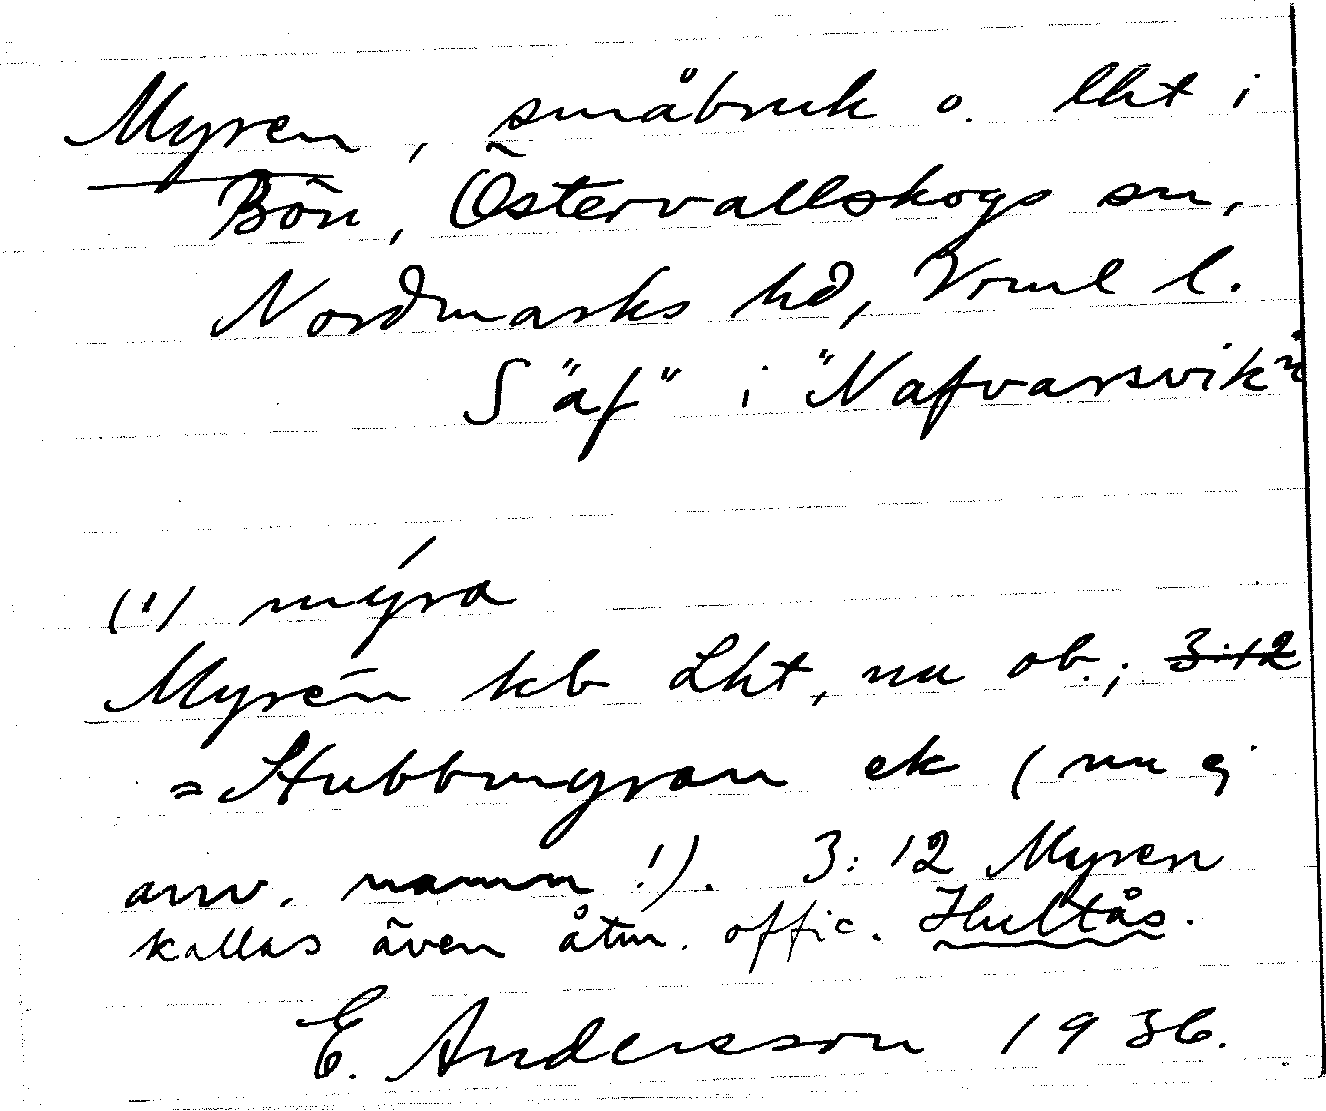 Myren, småbruk o. lht i
Bön, Östervallskogs sn,
Nordmarks hd, Vrml l.
S "äf" i "Nafvarsvik"
(!) mýra
Myren kb Lht, nu ob.; 3:12
= Stubbmyran ek (nu ej
anv. namn!). 3:12 Myren
kallas även åtm. offic. Hultås.
E. Andersson 1936.